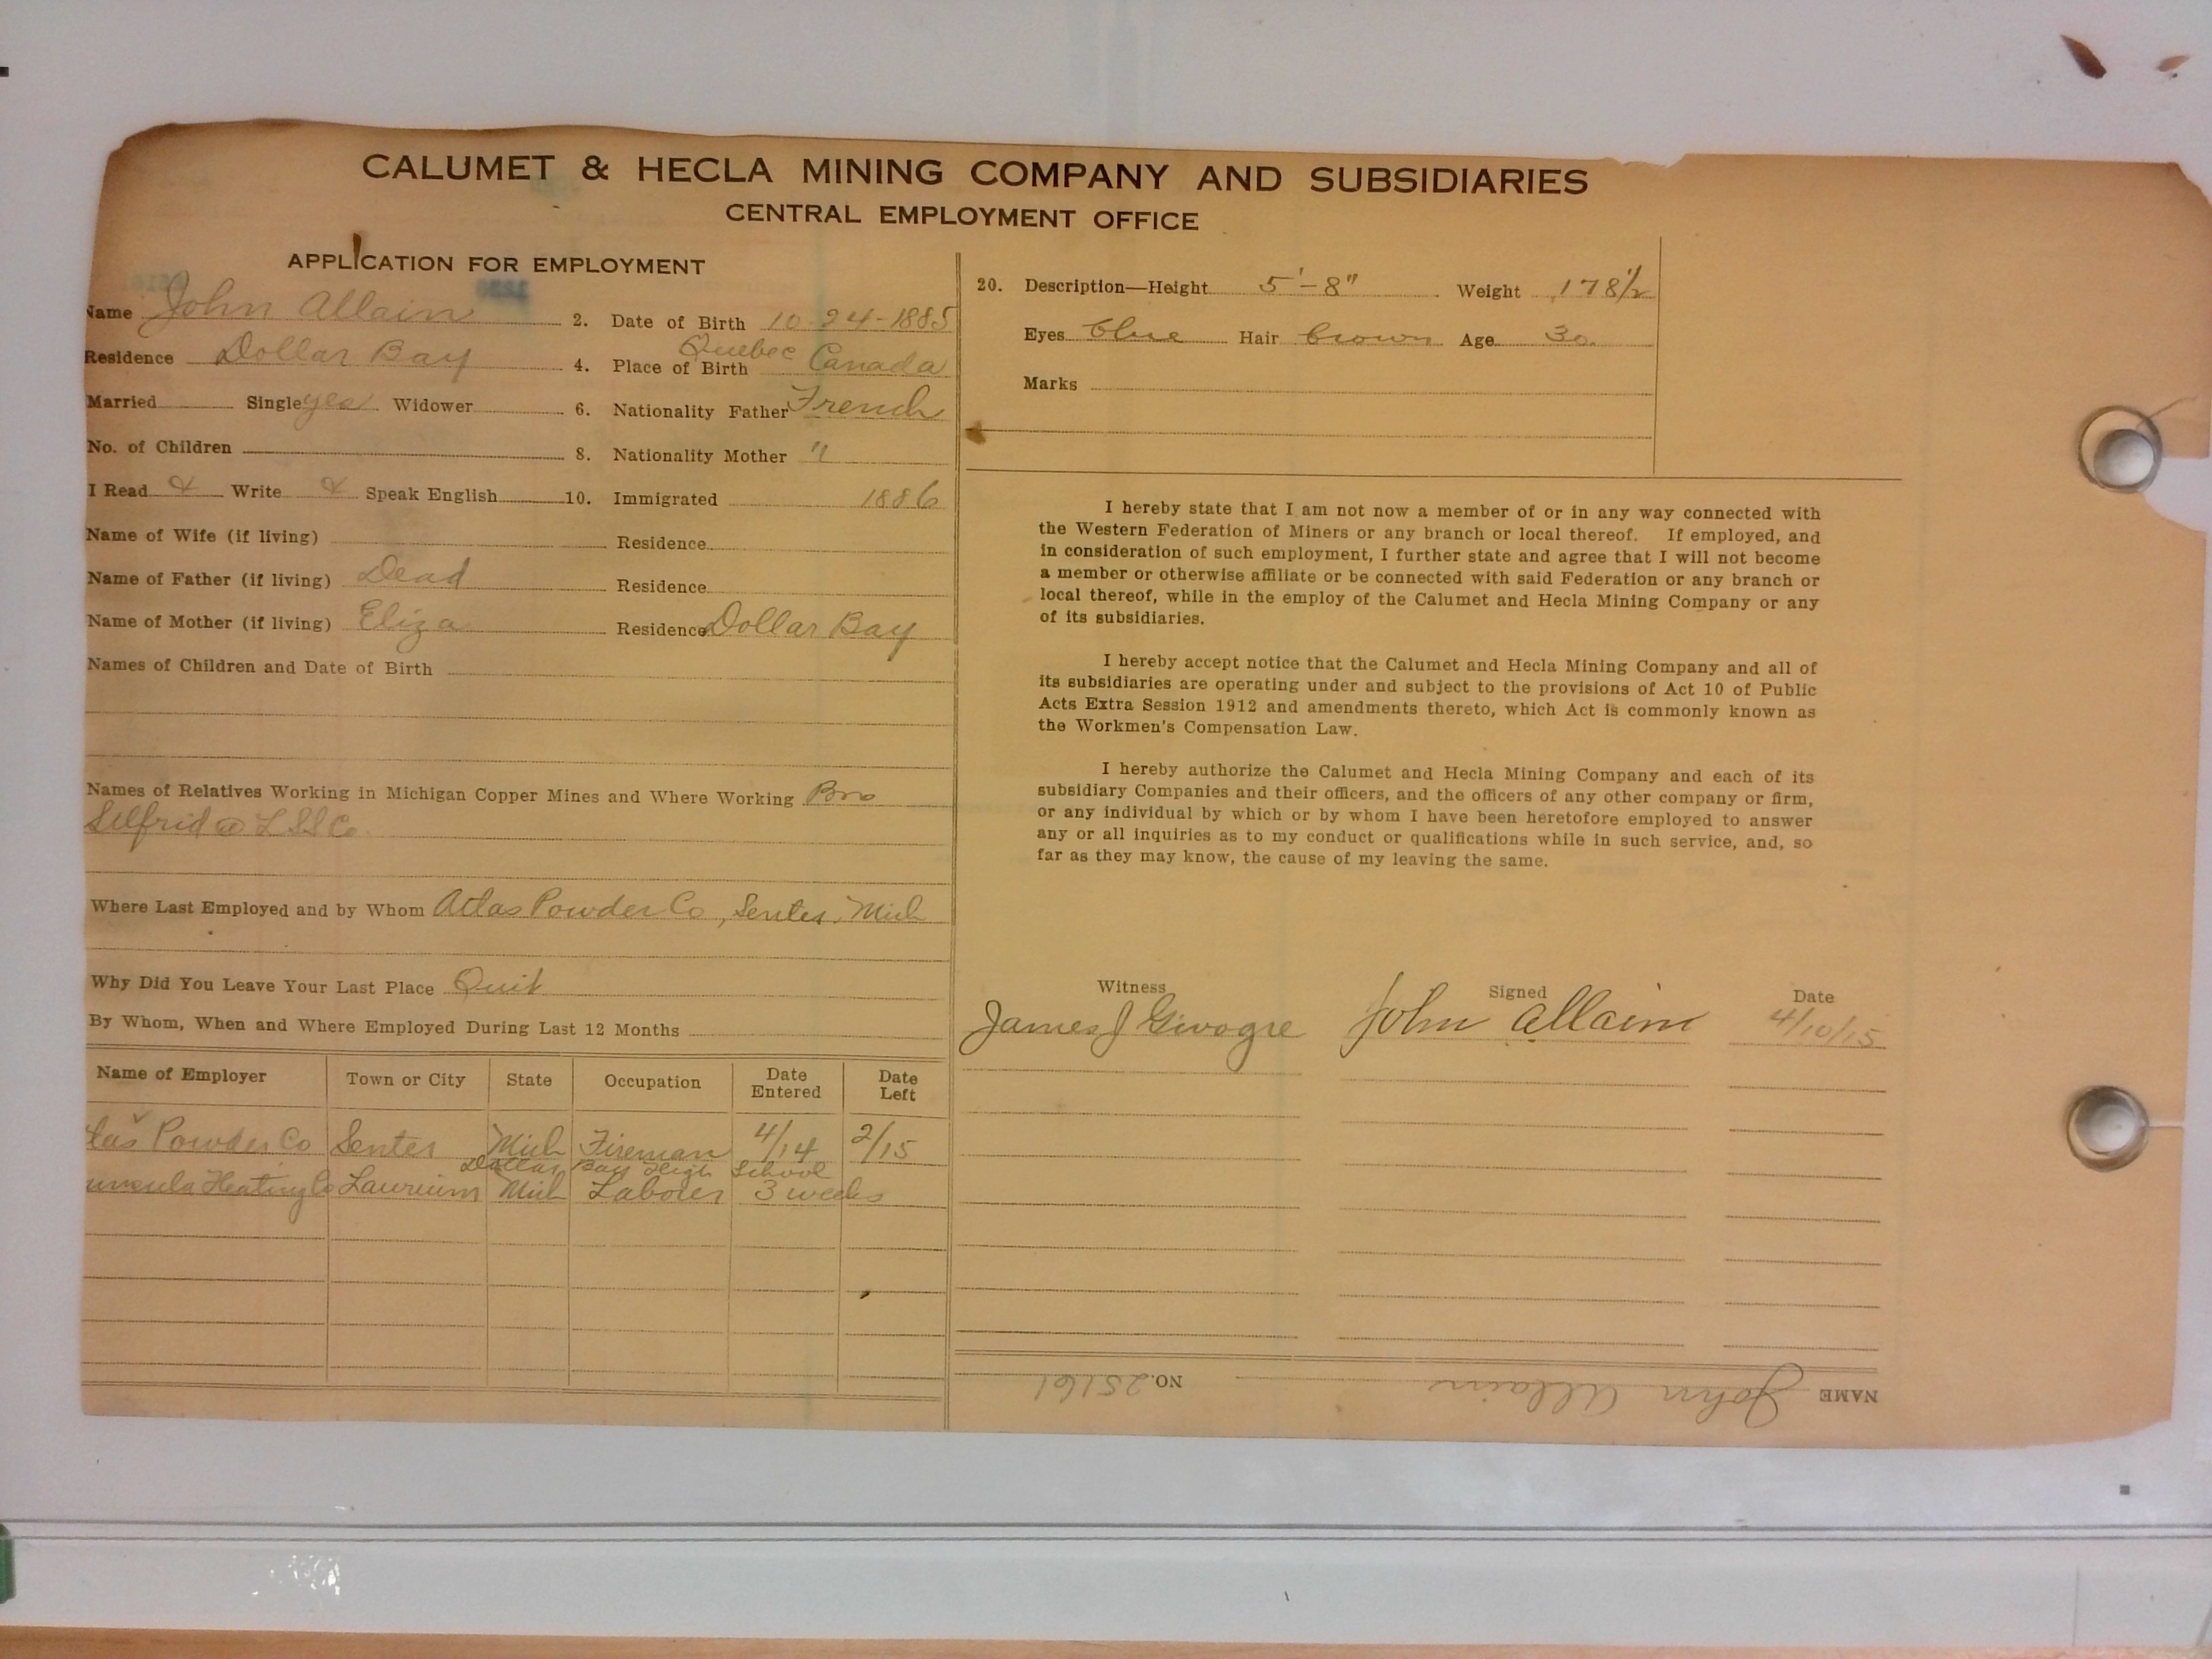 CALUMET & HECLA MINING COMPANY AND SUBSIDIARIES
CENTRAL EMPLOYMENT OFFICE
APPLICATION FOR EMPLOYMENT
Name John Allain 2. Date of Birth 10-24-1885
Residence Dollar Bay 4. Place of Birth Quebec Canada
Married Single yes Widower 6. Nationality Father French
No. of Children 8. Nationality Mother "
I Read & Write & Speak English 10. Immigrated 1886
Name of Wife (if living) Residence
Name of Father (if living) Dead Residence
Name of Mother (if living) Eliza Residence Dollar Bay
Names of Children and Date of Birth
Names of Relatives Working in Michigan Copper Mines and Where Working Bro
Selfrid @ L S S Co
Where Last Employed and by Whom Atlas Powder Co, Senter, Mich
Why Did You Leave Your Last Place Quit
By Whom, When and Where Employed During Last 12 Months
Name of Employer Town or City State Occupation Date Entered Date Left
las Powder Co Senter Mich Fireman 4/14 2/15
Dollar Bay High School
Heating Co Laurium Mich Laborer 3 weeks
20. Description—Height 5'-8" Weight 178½
Eyes blue Hair brown Age 30.
Marks
I hereby state that I am not now a member of or in any way connected with
the Western Federation of Miners or any branch or local thereof. If employed, and
in consideration of such employment, I further state and agree that I will not become
a member or otherwise affiliate or be connected with said Federation or any branch or
local thereof, while in the employ of the Calumet and Hecla Mining Company or any
of its subsidiaries.
I hereby accept notice that the Calumet and Hecla Mining Company and all of
its subsidiaries are operating under and subject to the provisions of Act 10 of Public
Acts Extra Session 1912 and amendments thereto, which Act is commonly known as
the Workmen's Compensation Law.
I hereby authorize the Calumet and Hecla Mining Company and each of its
subsidiary Companies and their officers, and the officers of any other company or firm,
or any individual by which or by whom I have been heretofore employed to answer
any or all inquiries as to my conduct or qualifications while in such service, and, so
far as they may know, the cause of my leaving the same.
Witness Signed Date
James J John Allain 4/10/15
NAME John Allain NO. 25161